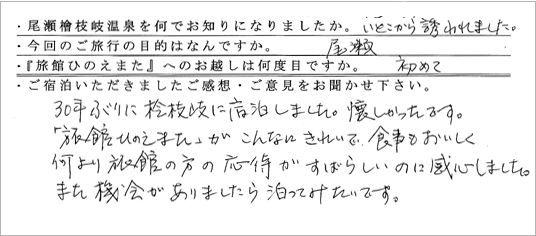 ・尾瀬檜枝岐温泉を何でお知りになりましたか。いとこから誘われました。
・今回のご旅行の目的はなんですか。 尾瀬
・『旅館ひのえまた』へのお越しは何度目ですか。 初めて
・ご宿泊いただきましたご感想・ご意見をお聞かせ下さい。
30年ぶりに桧枝岐に宿泊しました。懐しかったです。
「旅館ひのえまた」がこんなにきれいで、食事もおいしく
何より旅館の方の応待がすばらしいのに感心しました。
また機会がありましたら泊ってみたいです。